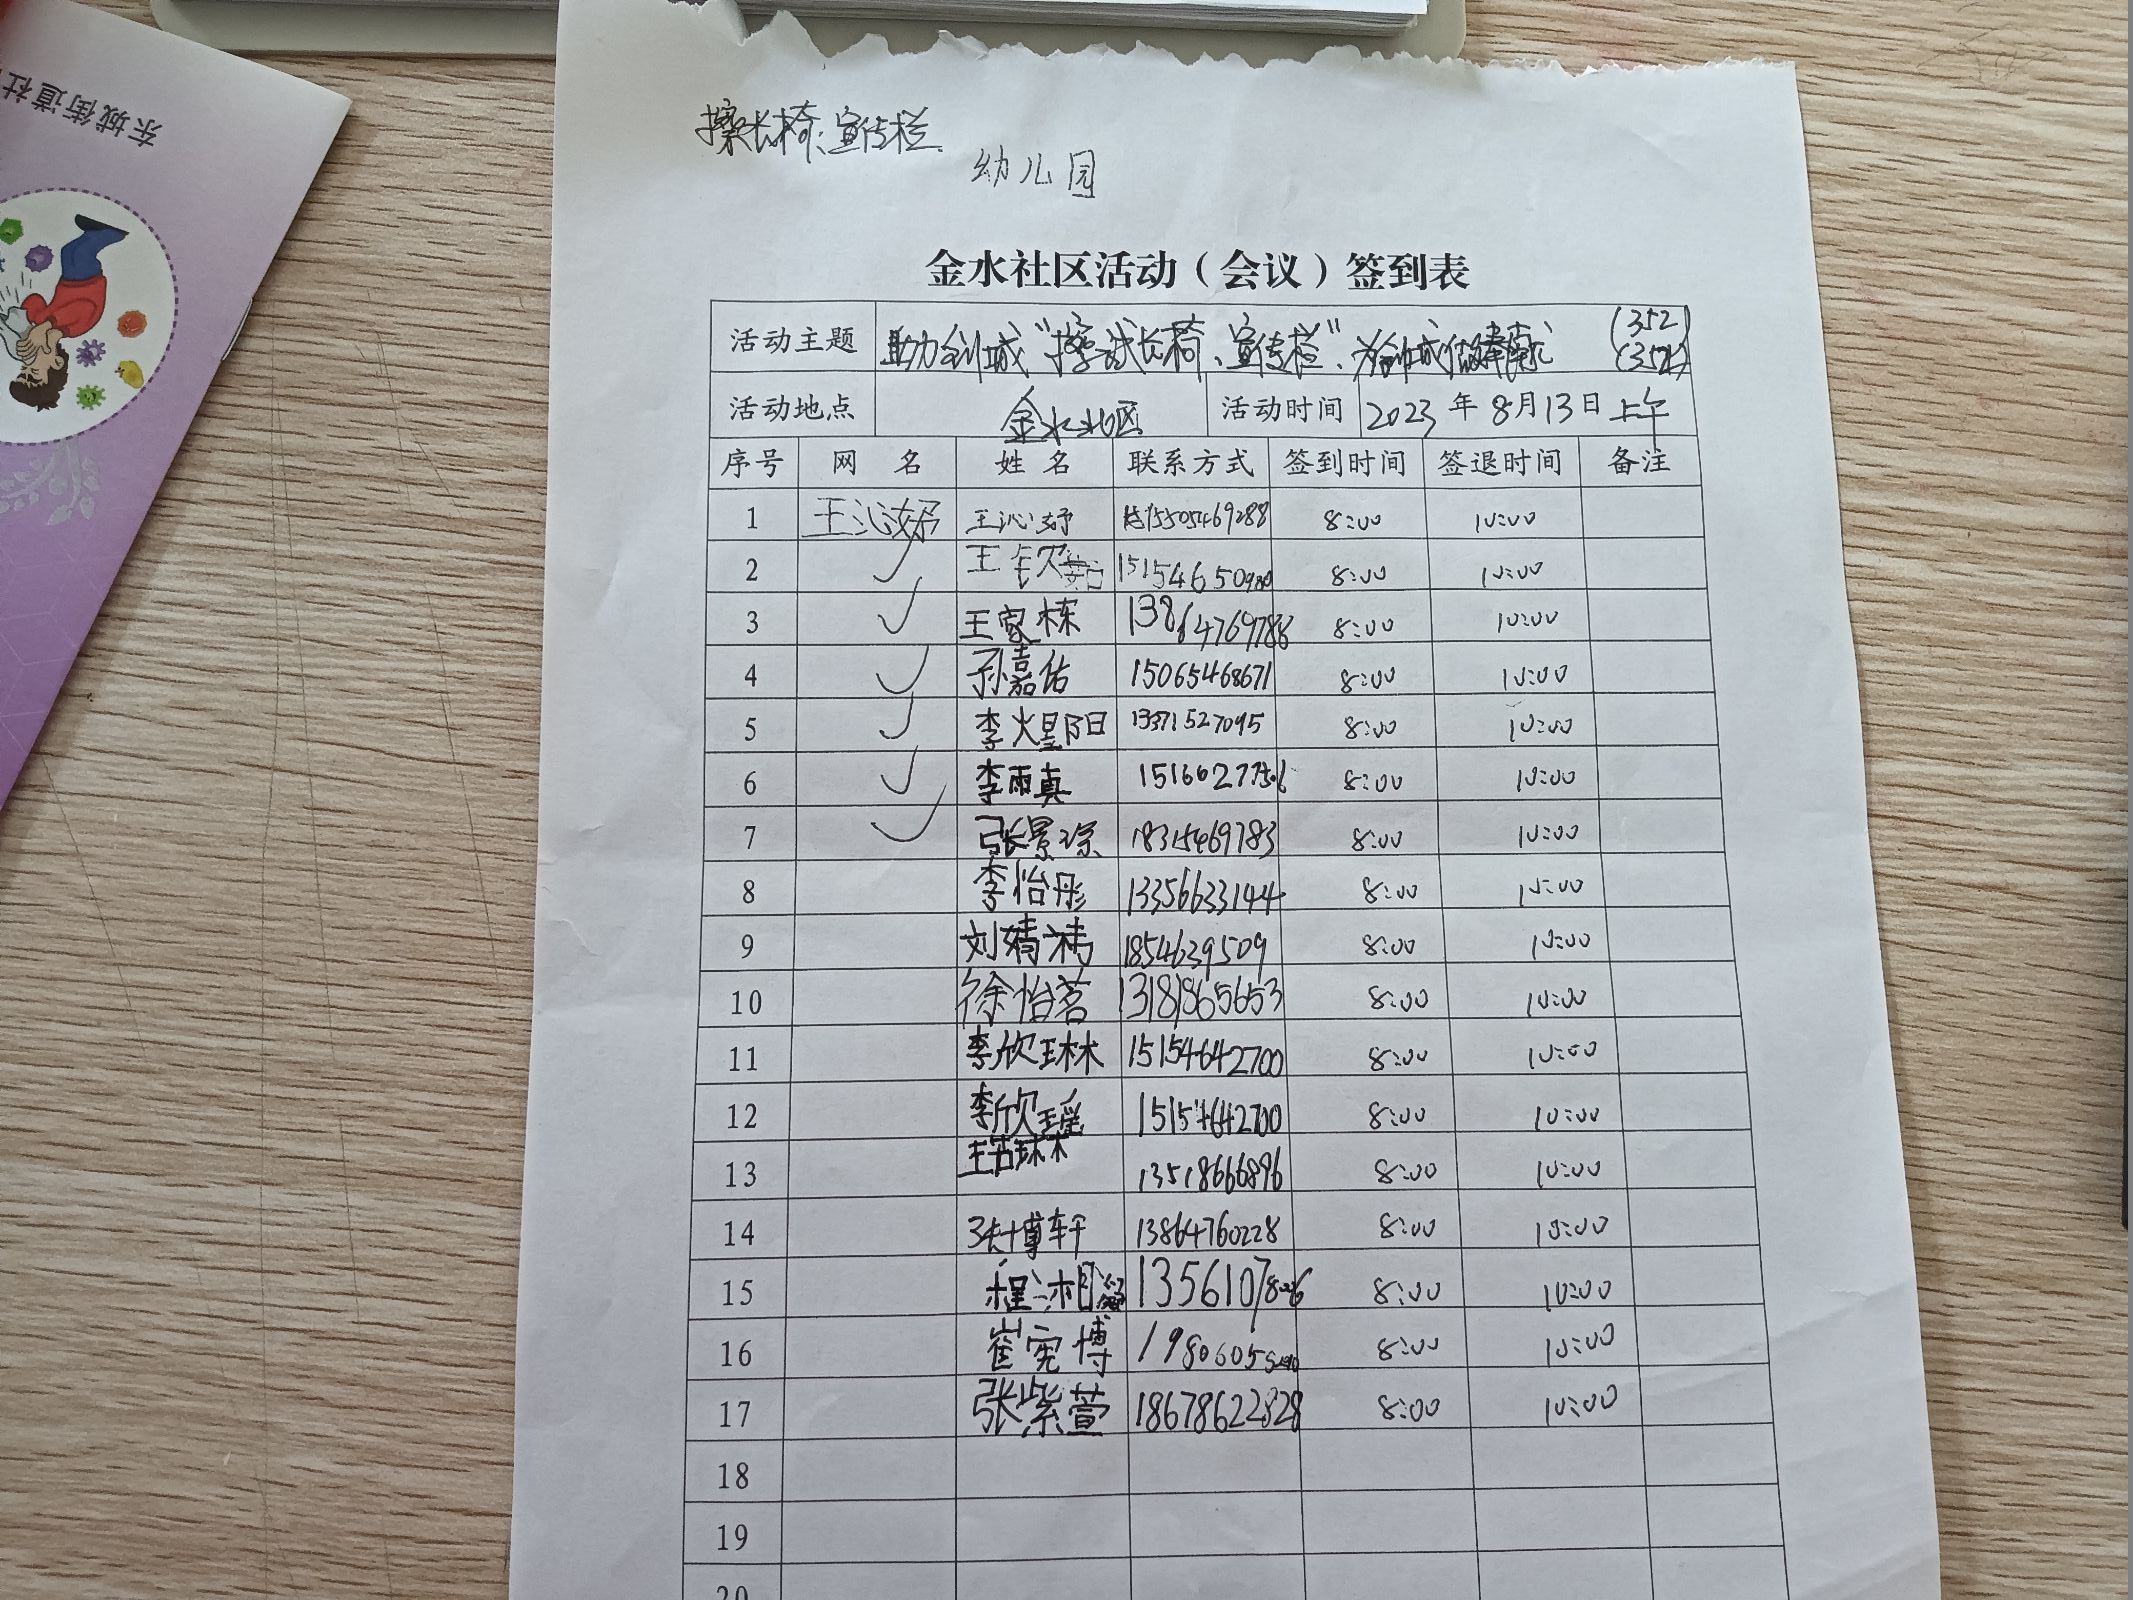 东城街道社
擦长椅、宣传栏
幼儿园
金水社区活动（会议）签到表
活动主题 助力创城“擦拭长椅、宣传栏”、为创城做 (352)
活动地点 金水北区 活动时间 2023年8月13日上午
序号 网 名 姓 名 联系方式 签到时间 签退时间 备注
1 王沁妤 王沁妤 15505469288 8:00 10:00
2 ✓ 王 8:00 10:00
3 ✓ 王家栋 13864769788 8:00 10:00
4 ✓ 孙嘉佑 15065468671 8:00 10:00
5 ✓ 李煌阳 13371527095 8:00 10:00
6 ✓ 李雨真 8:00 10:00
7 ✓ 张景琮 18315469783 8:00 10:00
8 李怡彤 13356633144 8:00 10:00
9 刘婧 1854639509 8:00 10:00
10 徐怡茗 13181865653 8:00 10:00
11 李欣琳 15154642700 8:00 10:00
12 李欣瑶 15154642700 8:00 10:00
13 王 13518666896 8:00 10:00
14 张博轩 13864760228 8:00 10:00
15 程湘 8:00 10:00
16 崔宪博 8:00 10:00
17 张紫萱 18678622828 8:00 10:00
18
19
20